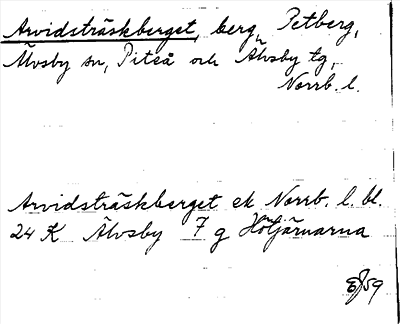 Arvidsträskberget, berg, Petberg,
Älvsby sn, Piteå och Älvsby tg,
Norrb. l.
Arvidsträskberget ek Norrb. l. bl.
24 K Älvsby 7 g Hötjärnarna